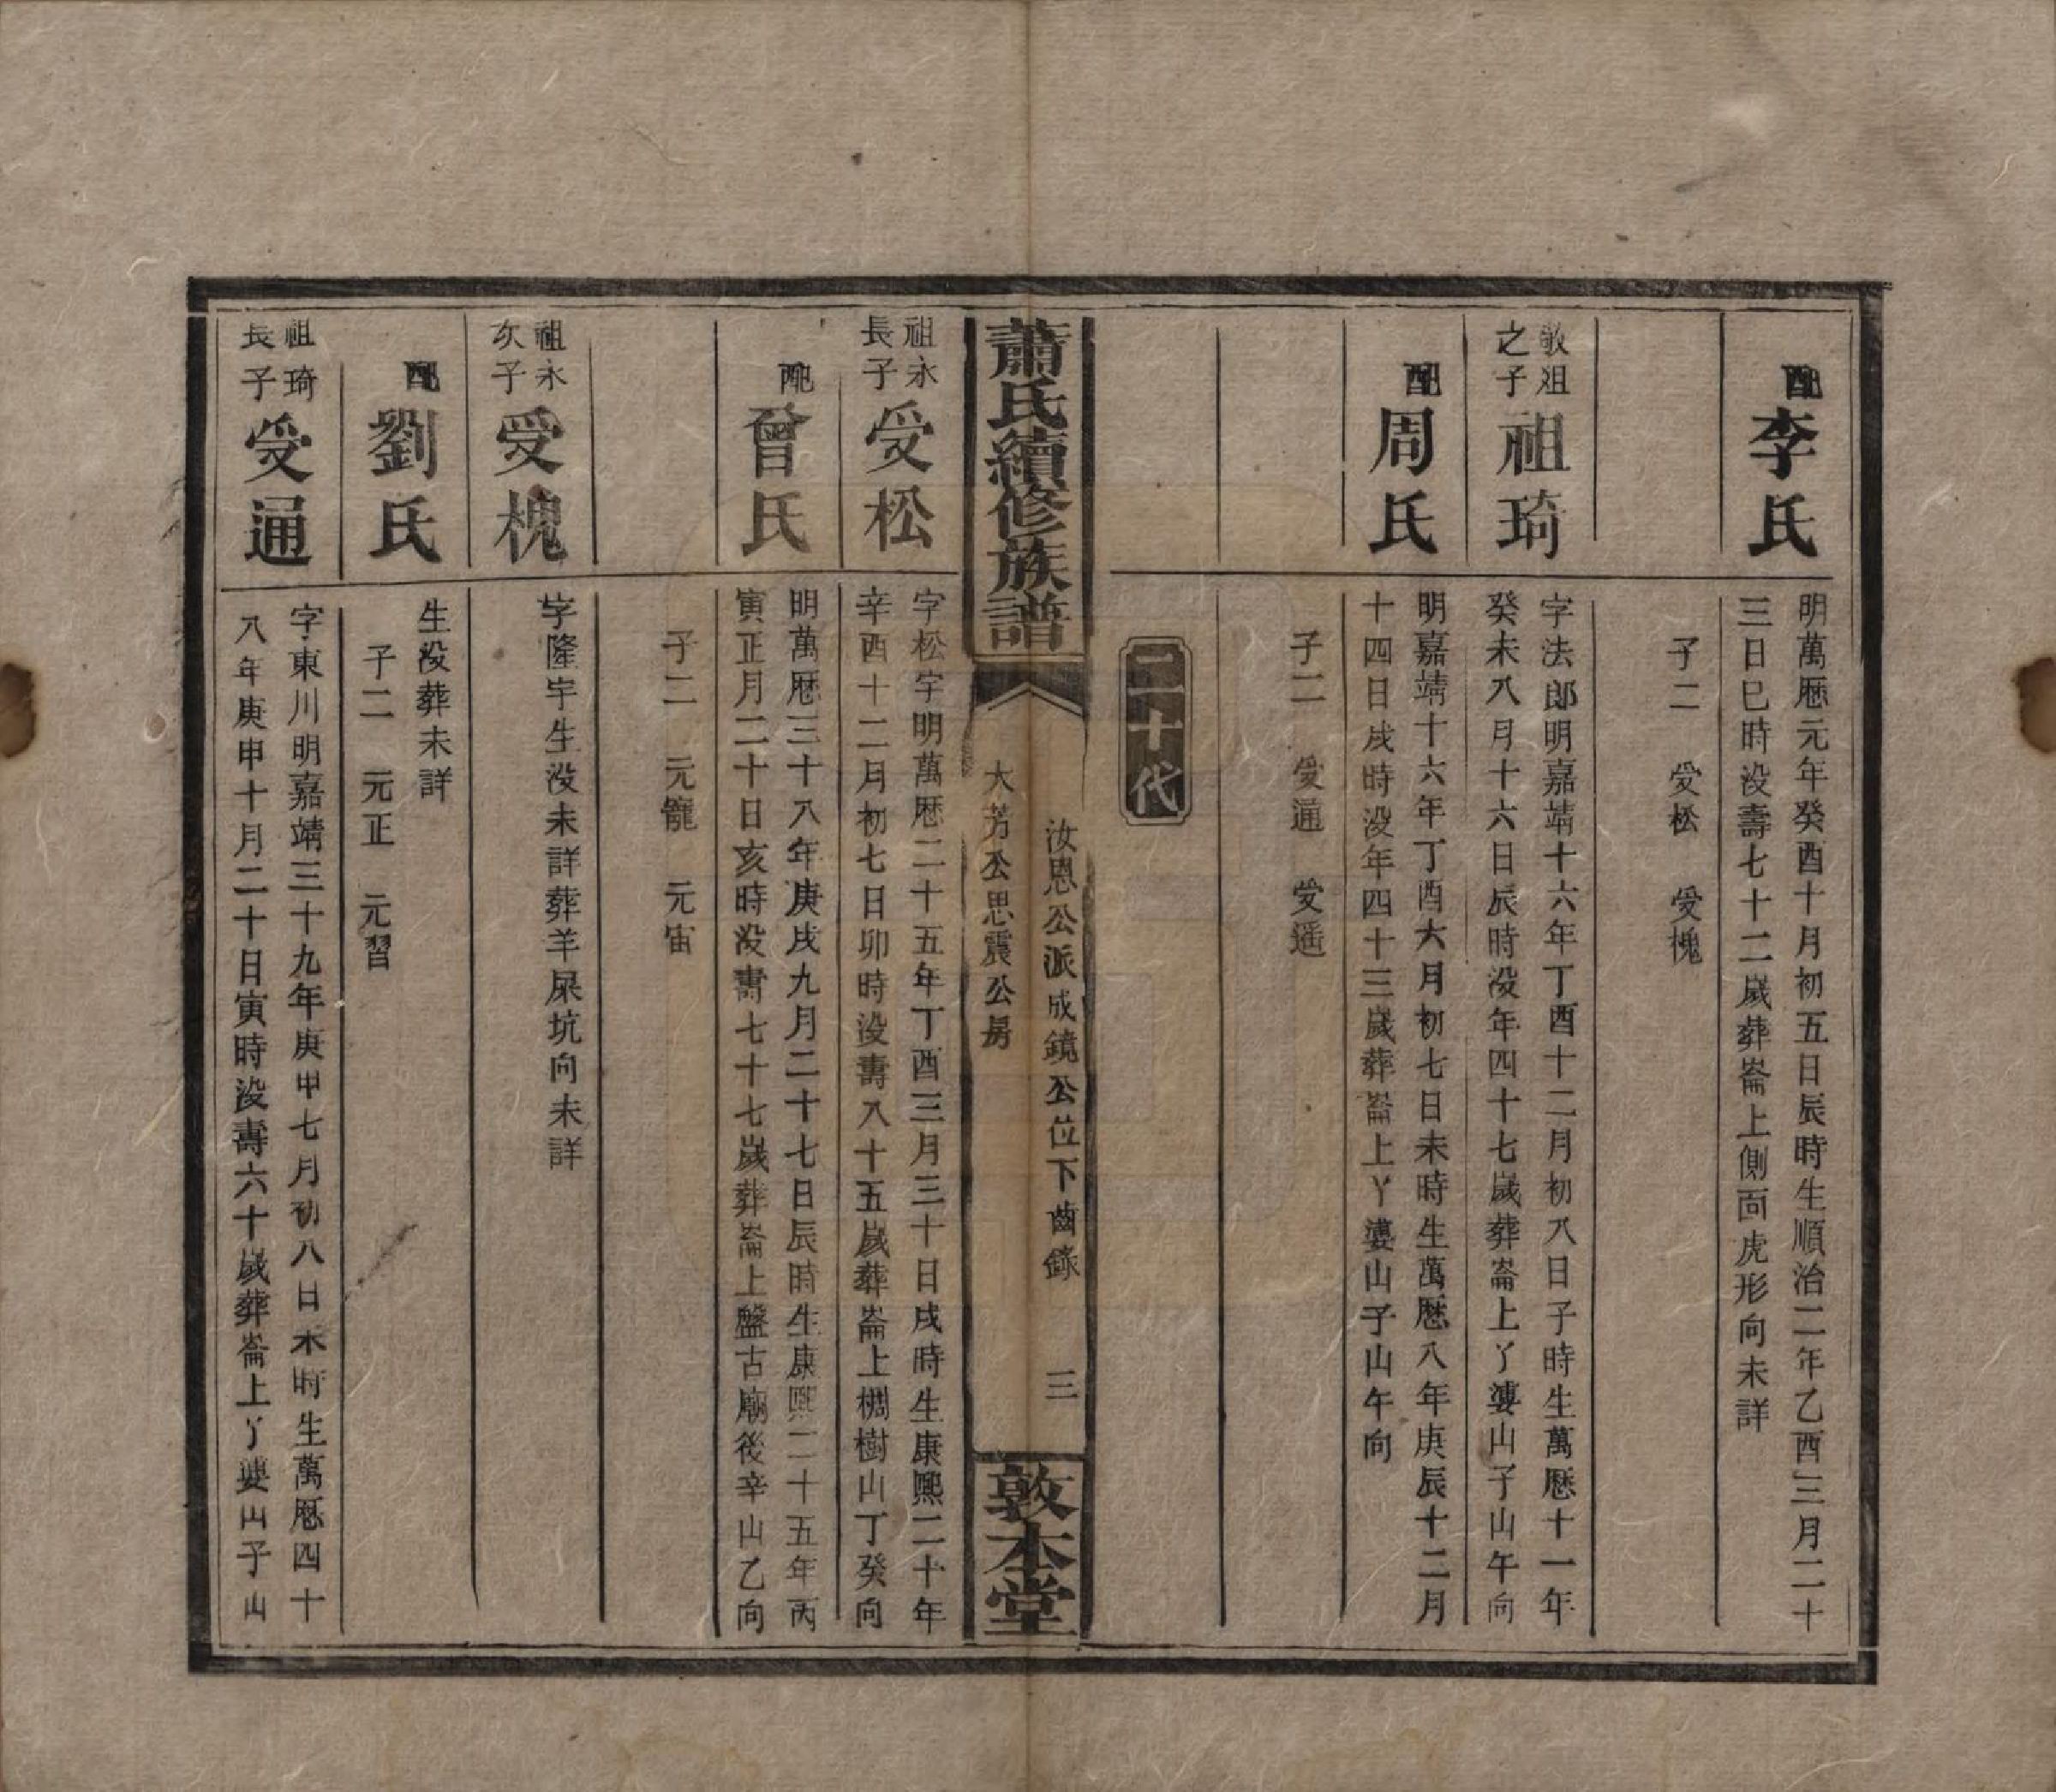 配李氏
明萬厯元年癸酉十月初五日辰時生順治二年乙酉三月二十
三日巳時没壽七十二歲葬崙上側面虎形向未詳
子二　受松　受槐
敬祖
之子
祖琦
字法郎明嘉靖十六年丁酉十二月初八日子時生萬厯十一年
癸未八月十六日辰時没年四十七歲葬崙上丫婆山子山午向
配周氏
明嘉靖十六年丁酉六月初七日未時生萬厯八年庚辰十二月
十四日戌時没年四十三歲葬崙上丫婆山子山午向
子二　受通　受遥
二十代
蕭氏續修族譜
汝恩公派成鏡公位下齒錄　三
大芳公思震公房
敦本堂
祖永
長子
受松
字松宇明萬厯二十五年丁酉三月三十日戌時生康熙二十年
辛酉十二月初七日卯時没壽八十五歲葬崙上椆樹山丁癸向
配曾氏
明萬厯三十八年庚戌九月二十七日辰時生康熙二十五年丙
寅正月二十日亥時没壽七十七歲葬崙上盤古廟後辛山乙向
子二　元寵　元宙
祖永
次子
受槐
字隆宇生没未詳葬羊屎坑向未詳
配劉氏
生没葬未詳
子二　元正　元習
祖琦
長子
受通
字東川明嘉靖三十九年庚申七月初八日未時生萬厯四十
八年庚申十月二十日寅時没壽六十歲葬崙上丫婆山子山